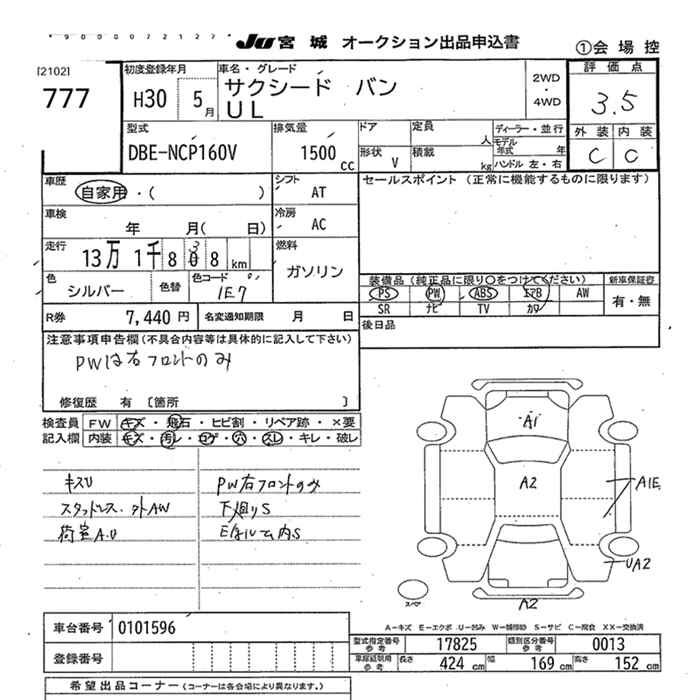 *9000072127*
JU 宮城 オークション出品申込書
①会場控
[2102]
777
初度登録年月
H30 5月
車名・グレード
サクシード バン
UL
2WD
・
4WD
評価点
3.5
外装 内装
C C
型式
DBE-NCP160V
排気量
1500 cc
ドア
定員 人
形状 V
積載 kg
ディーラー・並行
モデル年式 年
ハンドル 左・右
車歴
自家用・( )
シフト
AT
セールスポイント (正常に機能するものに限ります)
車検
年 月( 日)
冷房
AC
走行
13万1千808km
燃料
ガソリン
色
シルバー
色替
色コード
1E7
装備品(純正品に限り○をつけてください)
新車保証書
PS PW ABS エアB AW
SR ナビ TV カワ
有・無
R券 7,440円
名変通知期限 月 日
後日品
注意事項申告欄(不具合内容等は具体的に記入して下さい)
PWは右フロントのみ
修復歴 有 〔箇所 〕
検査員記入欄
FW キズ・飛石・ヒビ割・リペア跡・×要
内装 キズ・汚レ・コゲ・穴・スレ・キレ・破レ
キズU
スタットレス.外AW
荷室A.U
PW右フロントのみ
下廻りS
Eルーム内S
A1
A2
A1E
UA2
A2
スペア
A-キズ E-エクボ U-凹み W-補修跡 S-サビ C-腐食 XX-交換済
車台番号 0101596
登録番号
型式指定番号 参考 17825
類別区分番号 参考 0013
車庫証明用 参考 長さ 424 cm 幅 169 cm 高さ 152 cm
希望出品コーナー (コーナーは各会場により異なります。)